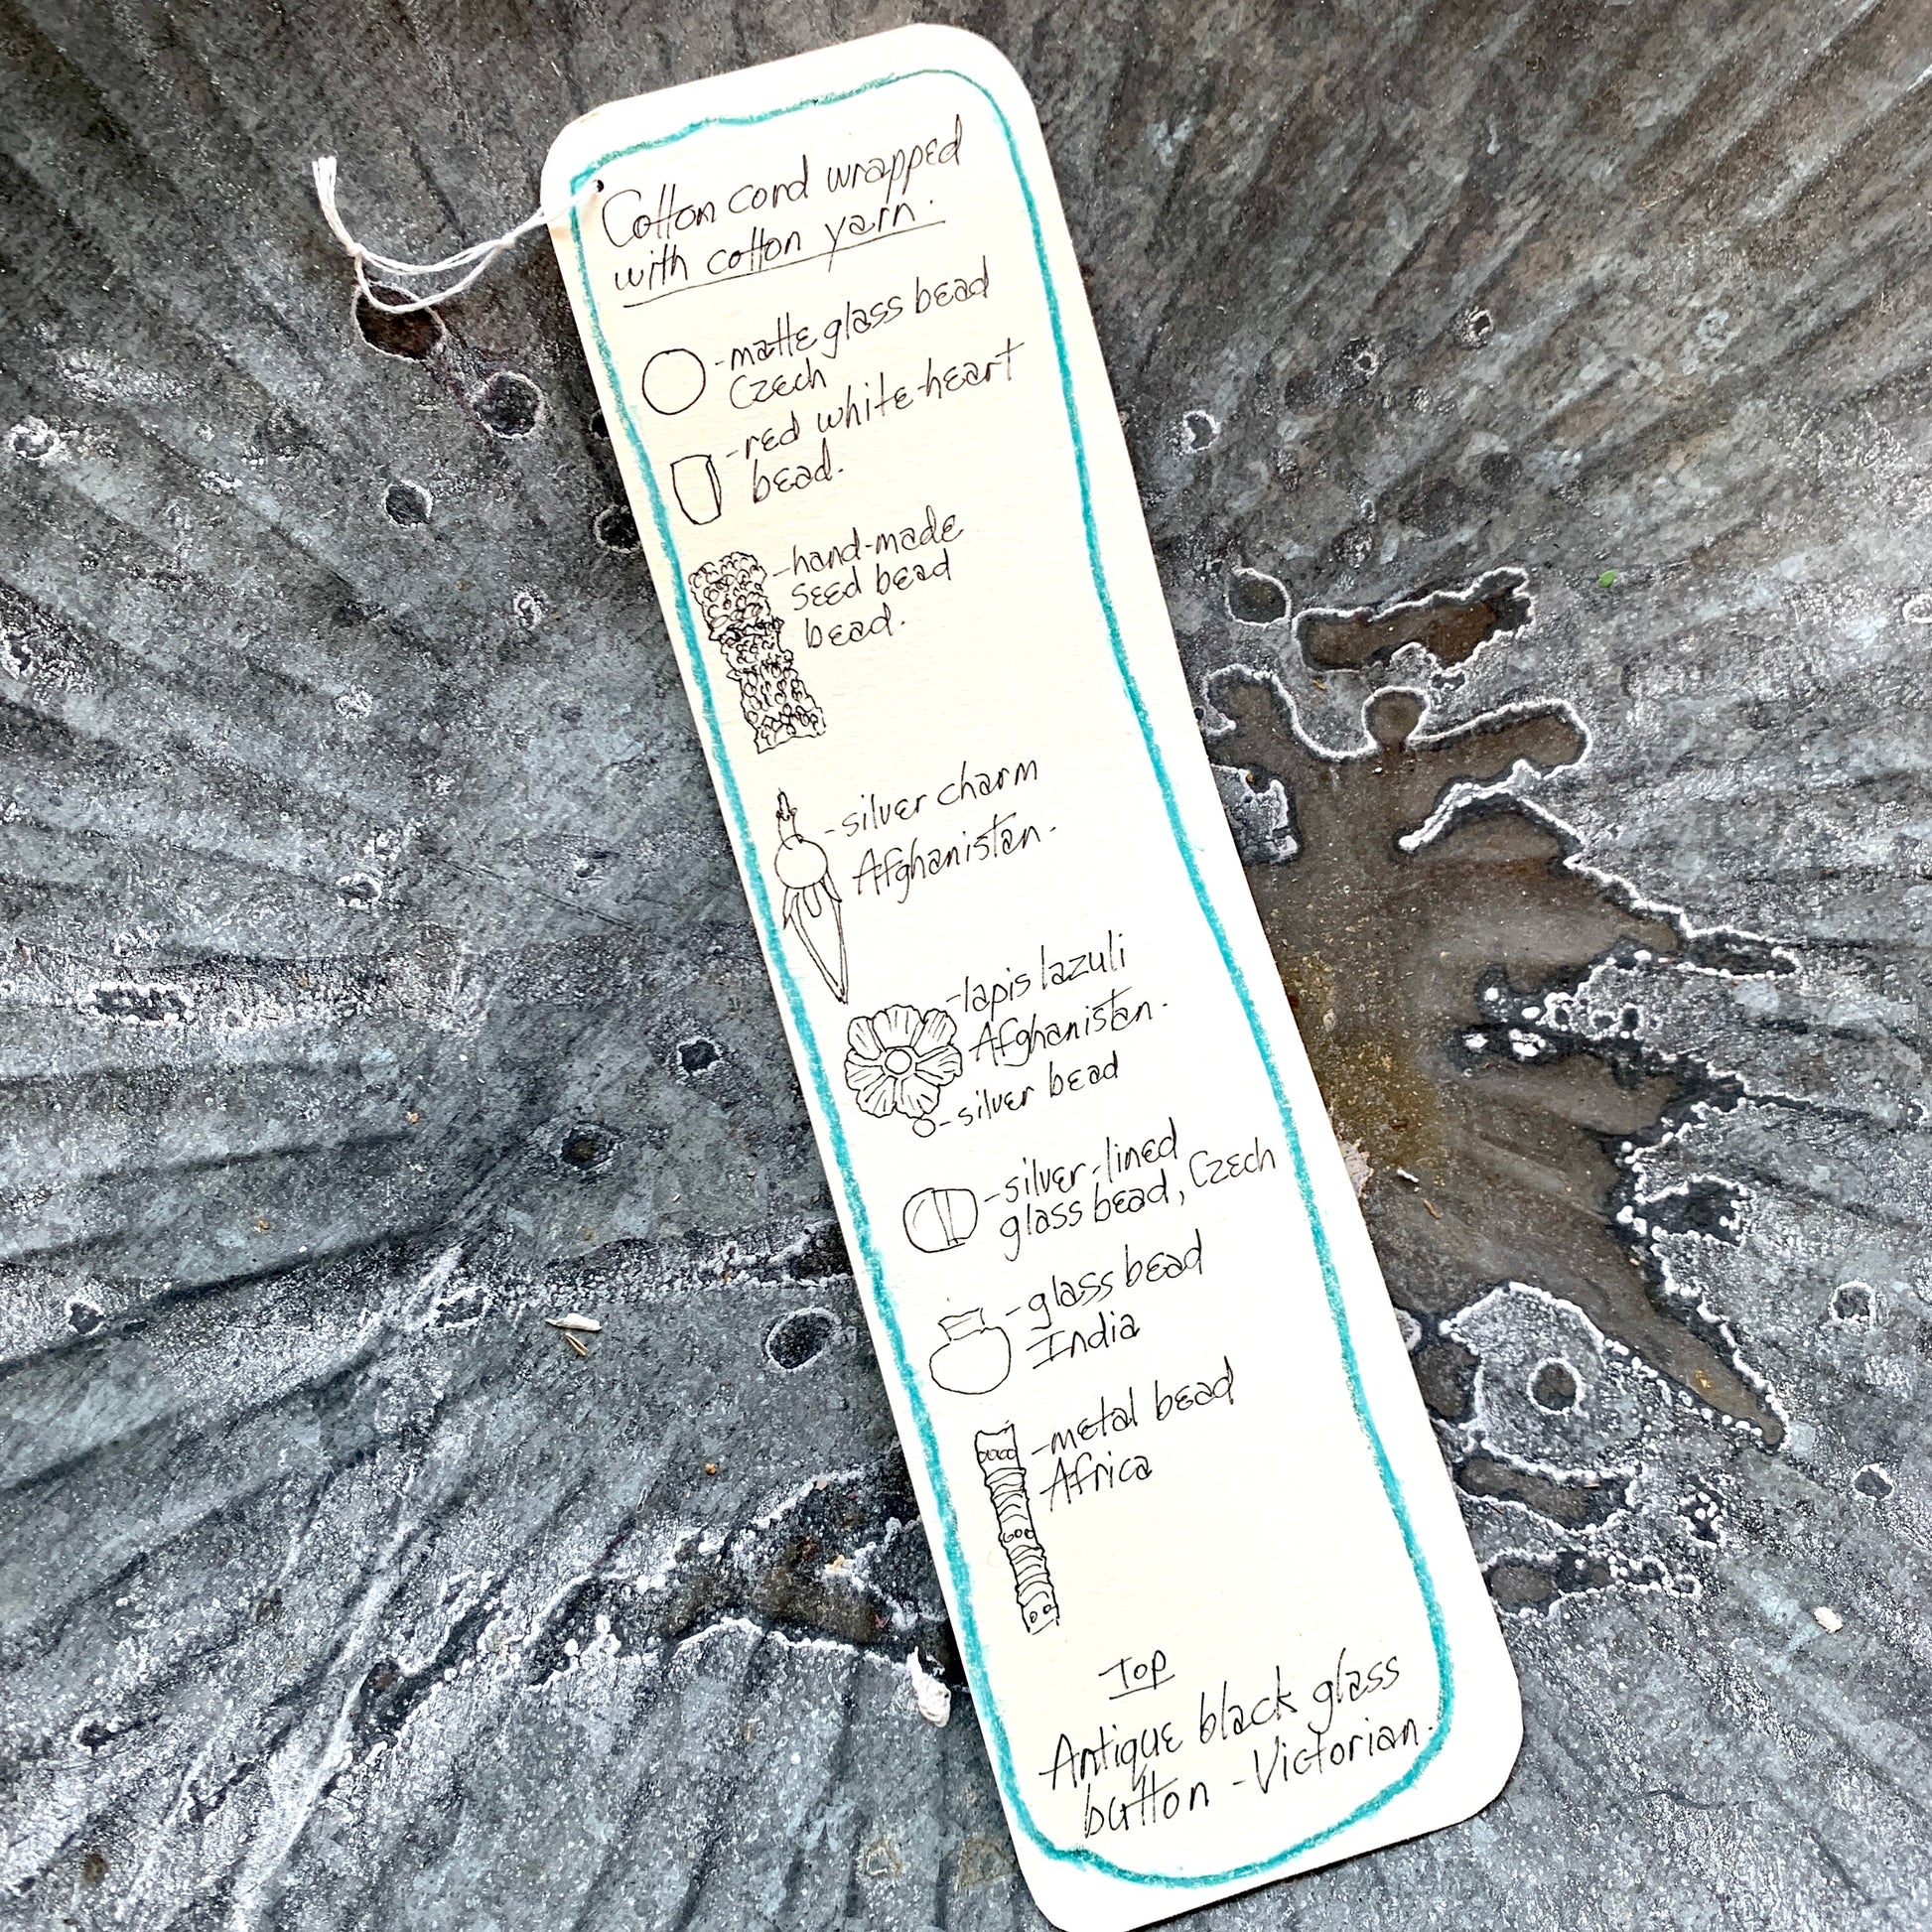 Cotton cord wrapped
with cotton yarn.
-matte glass bead
Czech
-red white-heart
bead.
-hand-made
seed bead
bead.
-silver charm
Afghanistan.
-lapis lazuli
Afghanistan.
-silver bead
-silver-lined
glass bead, Czech
-glass bead
India
-metal bead
Africa
Top
Antique black glass
button -Victorian.